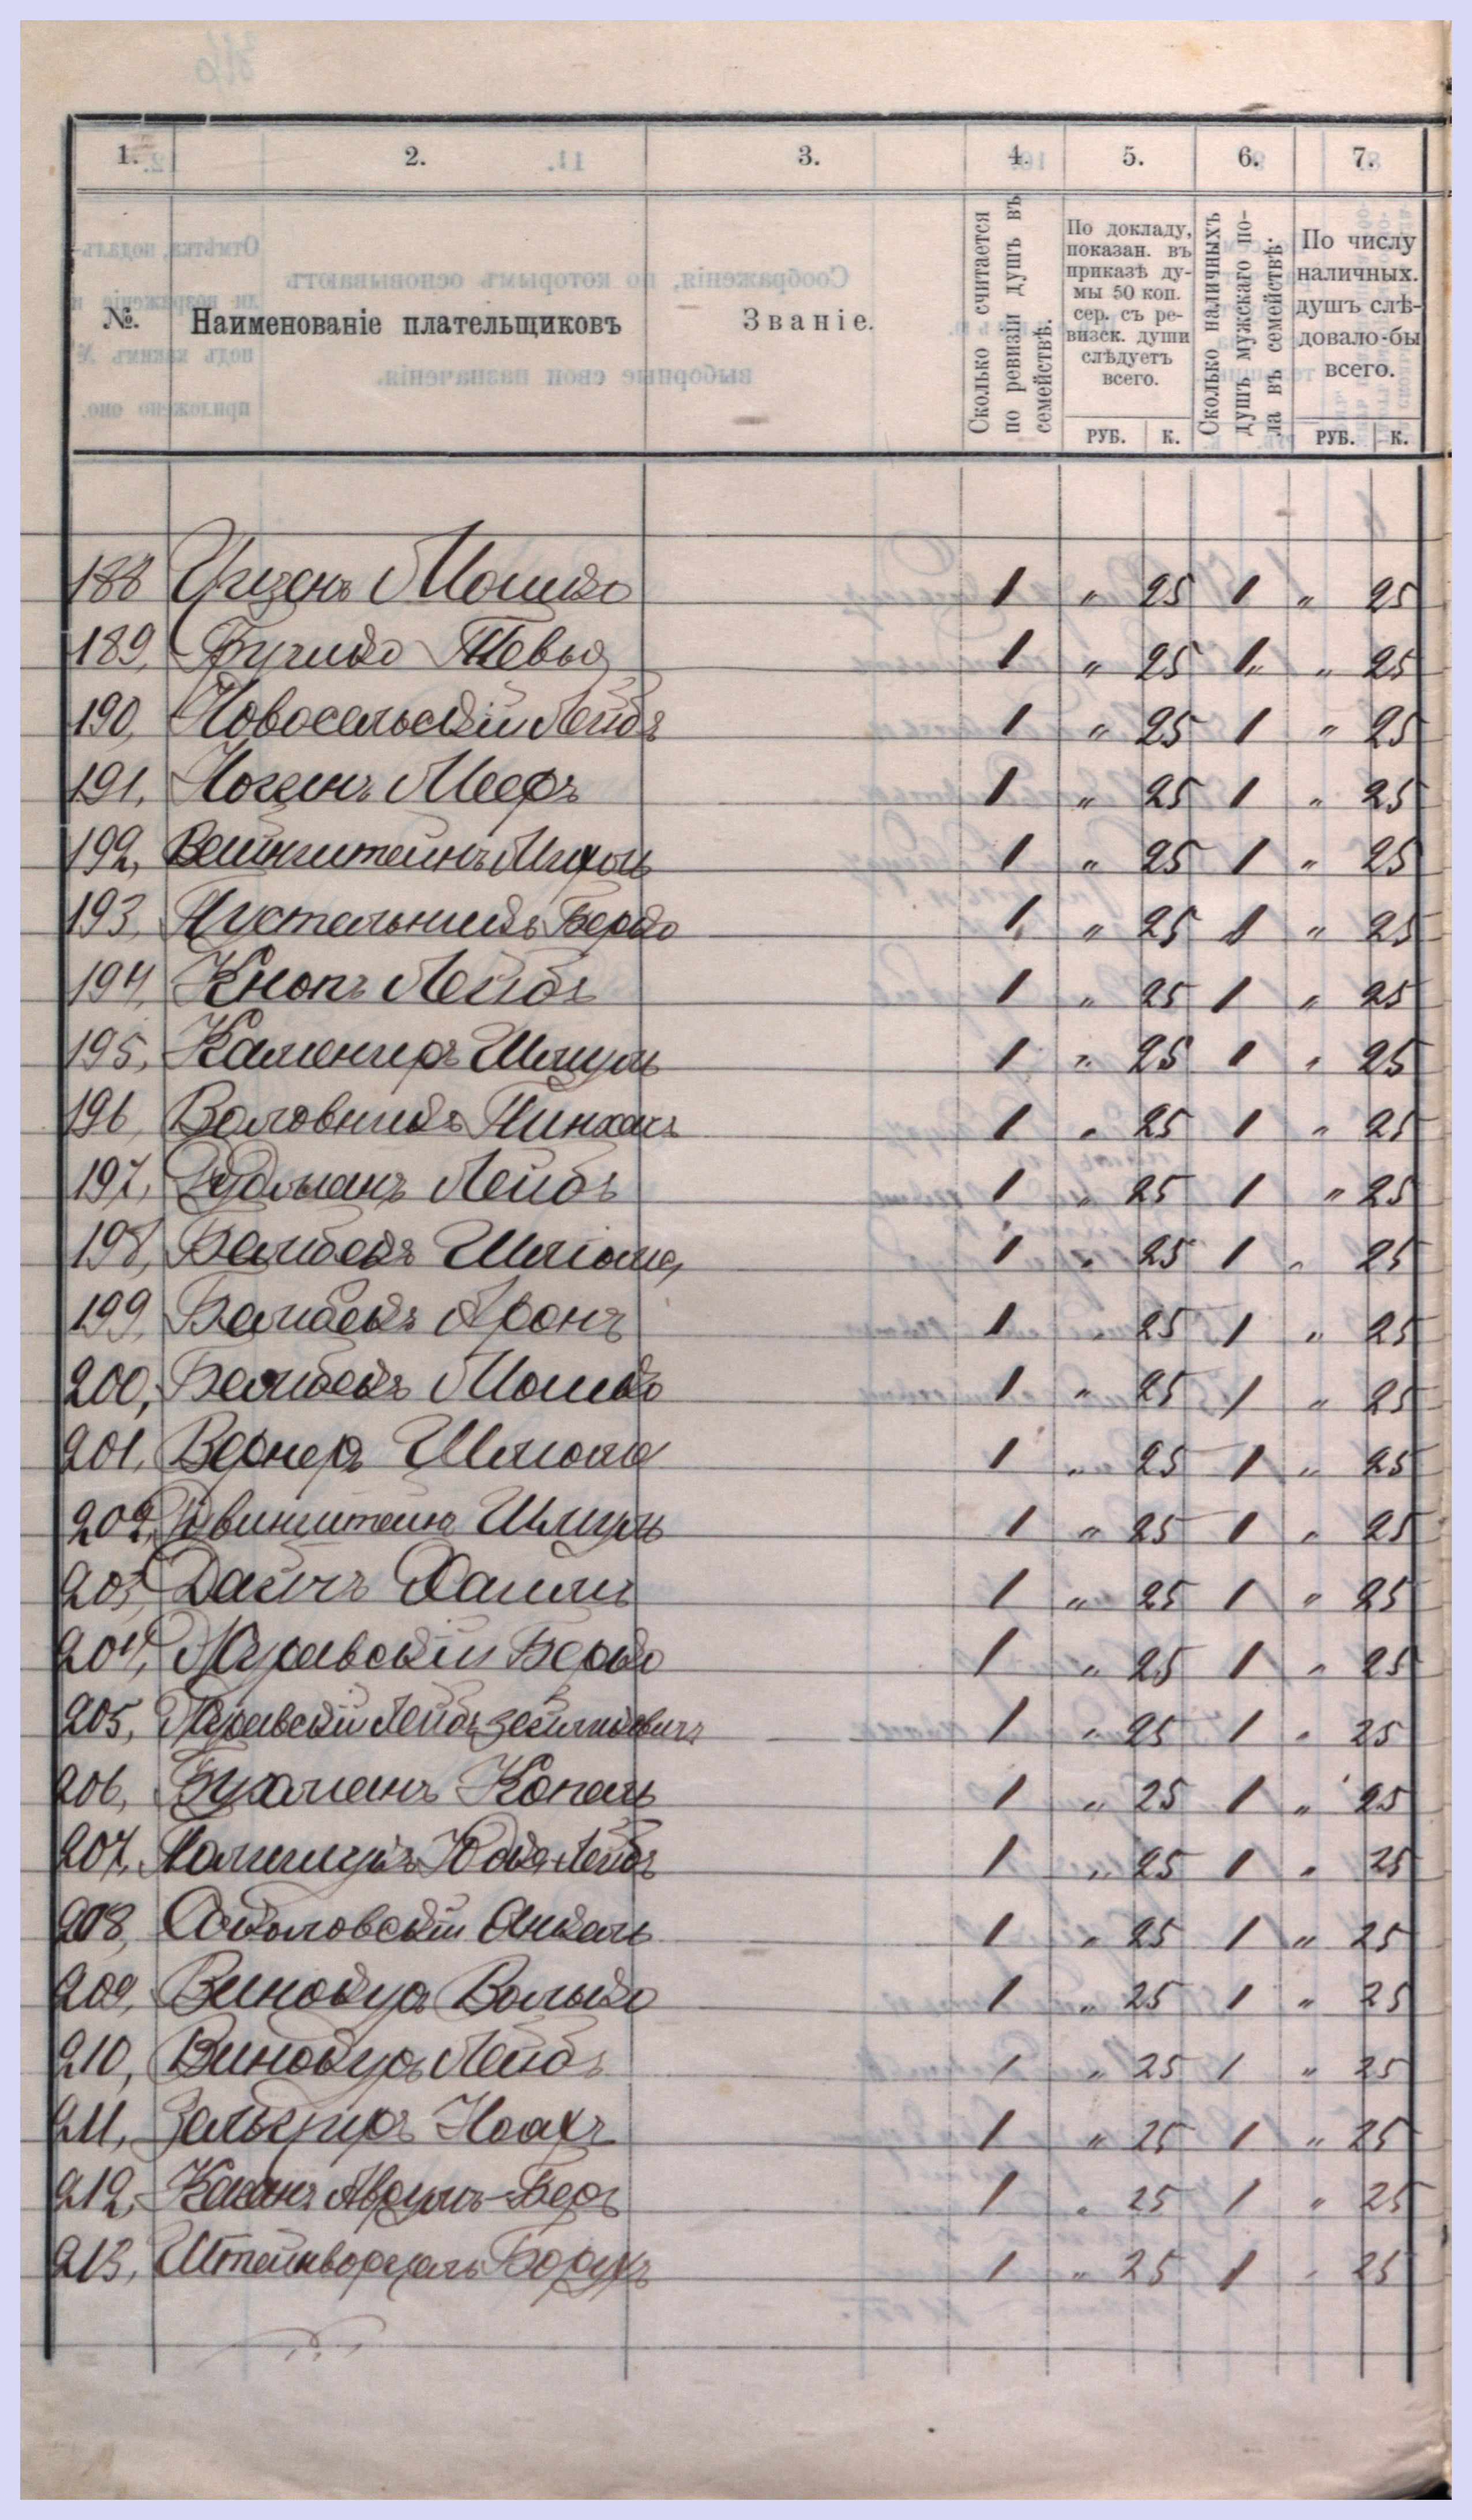 1. 2. 3. 4. 5. 6. 7.
№. Наименованіе плательщиковъ Званіе. Сколько считается по ревизіи душъ въ семействѣ. По докладу, показан. въ приказѣ думы 50 коп. сер. съ ревизск. души слѣдуетъ всего. Сколько наличныхъ душъ мужскаго пола въ семействѣ. По числу наличныхъ. душъ слѣдовало-бы всего.
РУБ. К. РУБ. К.
188 Мошко 1 " 25 1 " 25
189, Тевья 1 " 25 1 " 25
190, Новосельскій Лейбъ 1 " 25 1 " 25
191, Мееръ 1 " 25 1 " 25
192, Вейнштейнъ Михель 1 " 25 1 " 25
193, Пустельникъ Берко 1 " 25 1 " 25
194, Кнопъ Лейбъ 1 " 25 1 " 25
195, Камениръ Шмуль 1 " 25 1 " 25
196, Воловникъ Пинхасъ 1 " 25 1 " 25
197, Лейбъ 1 " 25 1 " 25
198, Балбекъ Шлiома 1 " 25 1 " 25
199, Балбекъ Аронъ 1 " 25 1 " 25
200, Балбекъ Мошко 1 " 25 1 " 25
201, Вернеръ Шлiома 1 " 25 1 " 25
202, Шмуль 1 " 25 1 " 25
203, Дайчъ Хаимъ 1 " 25 1 " 25
204, Берко 1 " 25 1 " 25
205, Лейбъ Зейликовичъ 1 " 25 1 " 25
206, Бухманъ Копель 1 " 25 1 " 25
207, Лейбъ 1 " 25 1 " 25
208, Соколовскій Янкель 1 " 25 1 " 25
209, Винокуръ Волько 1 " 25 1 " 25
210, Винокуръ Лейбъ 1 " 25 1 " 25
211, Ноахъ 1 " 25 1 " 25
212, Каганъ Аврумъ-Беръ 1 " 25 1 " 25
213, Штейнворцель Борухъ 1 " 25 1 " 25